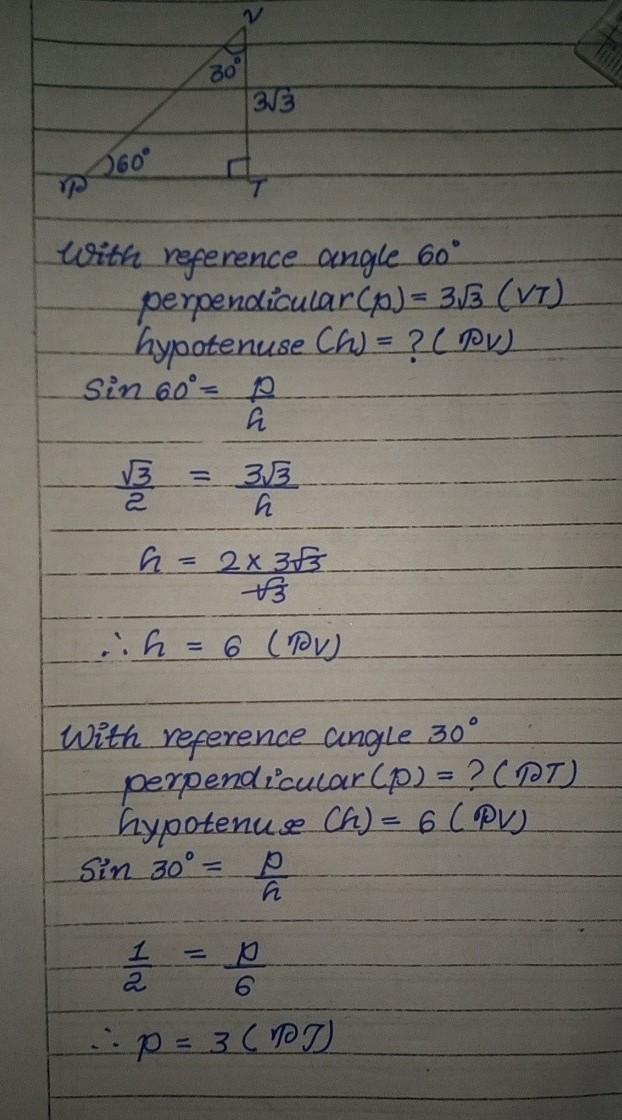 V
30°
3√3
60°
P
T
With reference angle 60°
perpendicular(p) = 3√3 (VT)
hypotenuse (h) = ? (PV)
Sin 60° = p/h
√3/2 = 3√3/h
h = 2 × 3√3/√3
∴ h = 6 (PV)
With reference angle 30°
perpendicular(p) = ? (PT)
hypotenuse (h) = 6 (PV)
Sin 30° = p/h
1/2 = p/6
∴ p = 3 (PT)